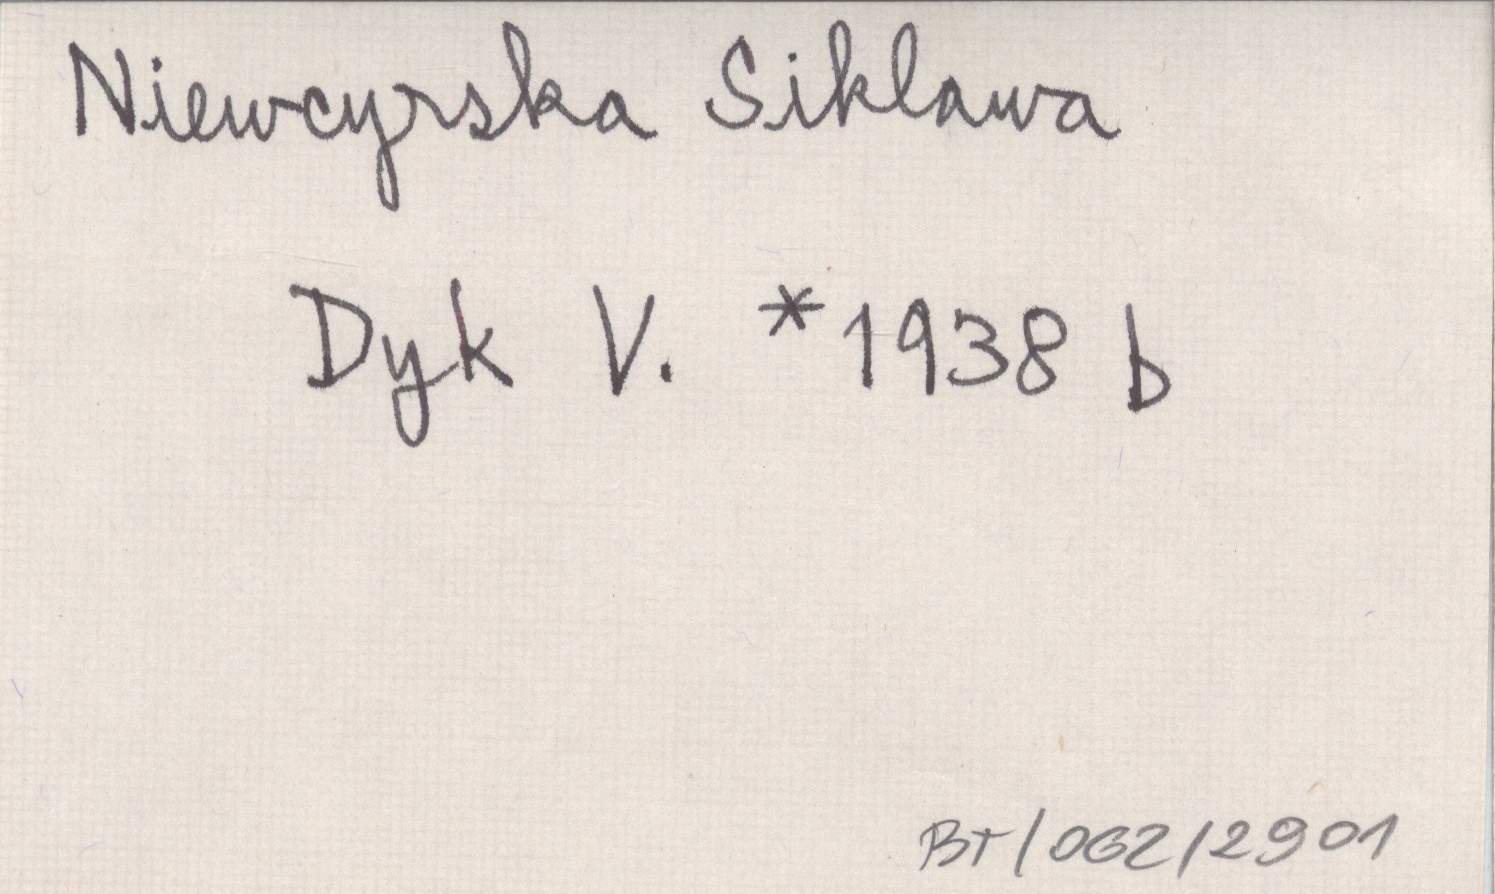 Niewcyrska Siklawa
Dyk V. *1938 b
BT/062/2901